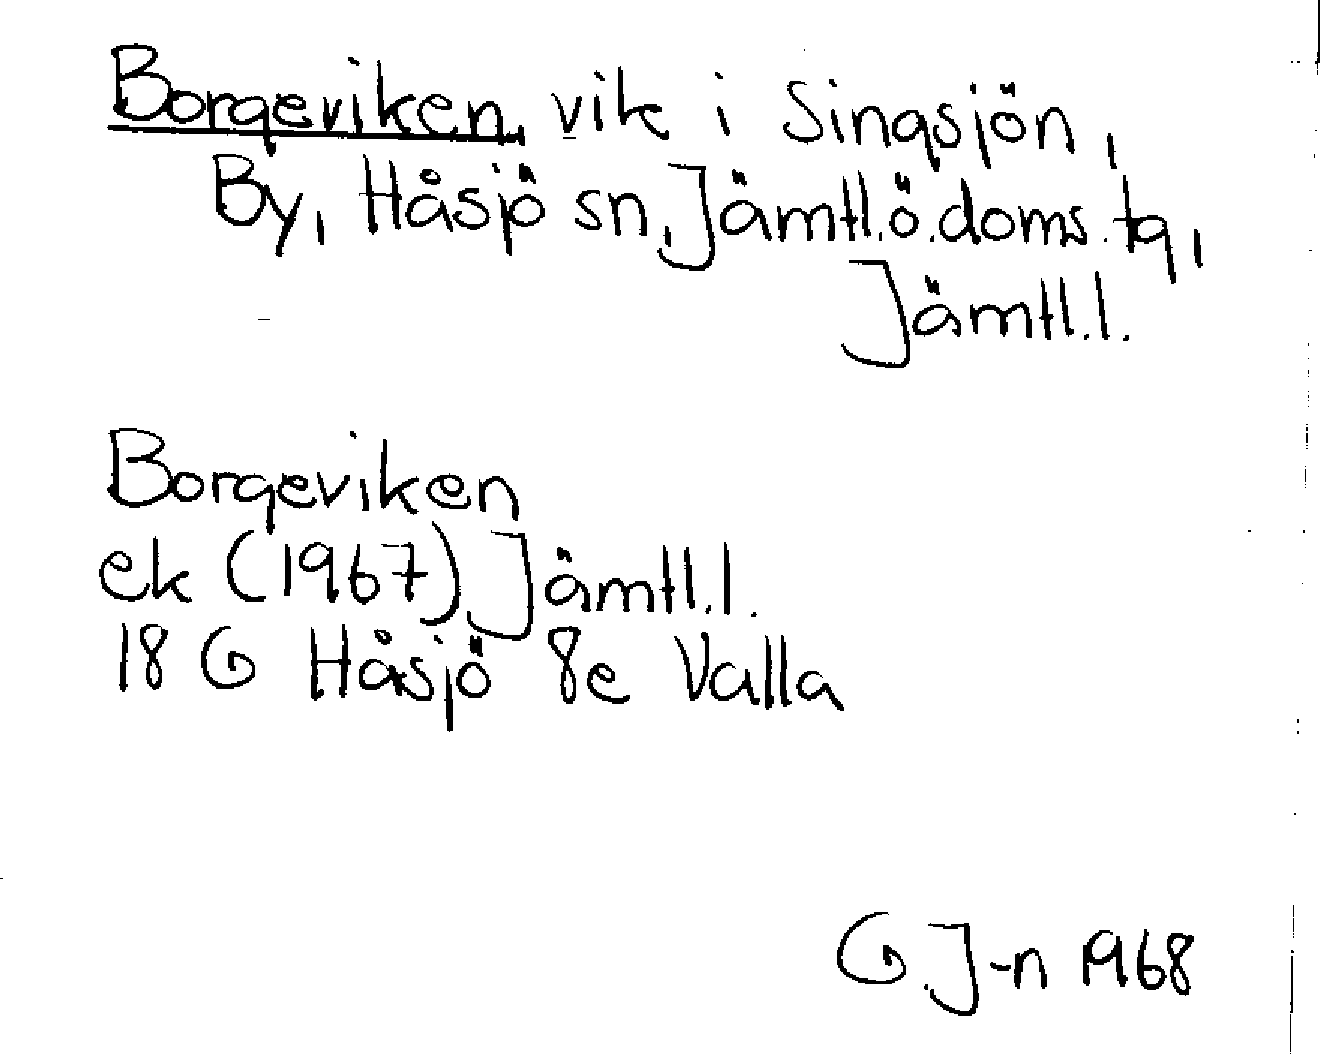 Borgeviken, vik i Singsjön,
By, Håsjö sn, Jämtl.ö.doms.tg,
Jämtl.l.
Borgeviken
ek (1967) Jämtl.l.
18 G Håsjö 8e Valla
G.J-n 1968